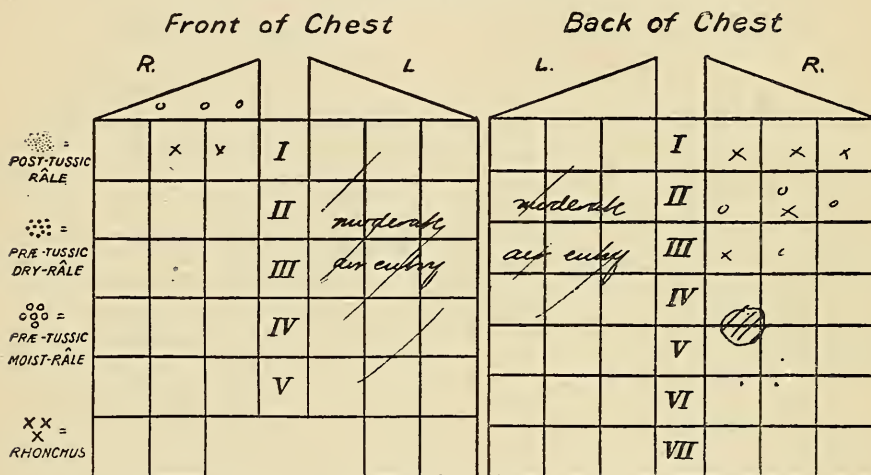 Front of Chest
Back of Chest
R. L
L. R.
POST-TUSSIC
RÂLE
PRÆ-TUSSIC
DRY-RÂLE
PRÆ-TUSSIC
MOIST-RÂLE
RHONCHUS
I
II
III
IV
V
moderate
air entry
I
II
III
IV
V
VI
VII
moderate
air entry